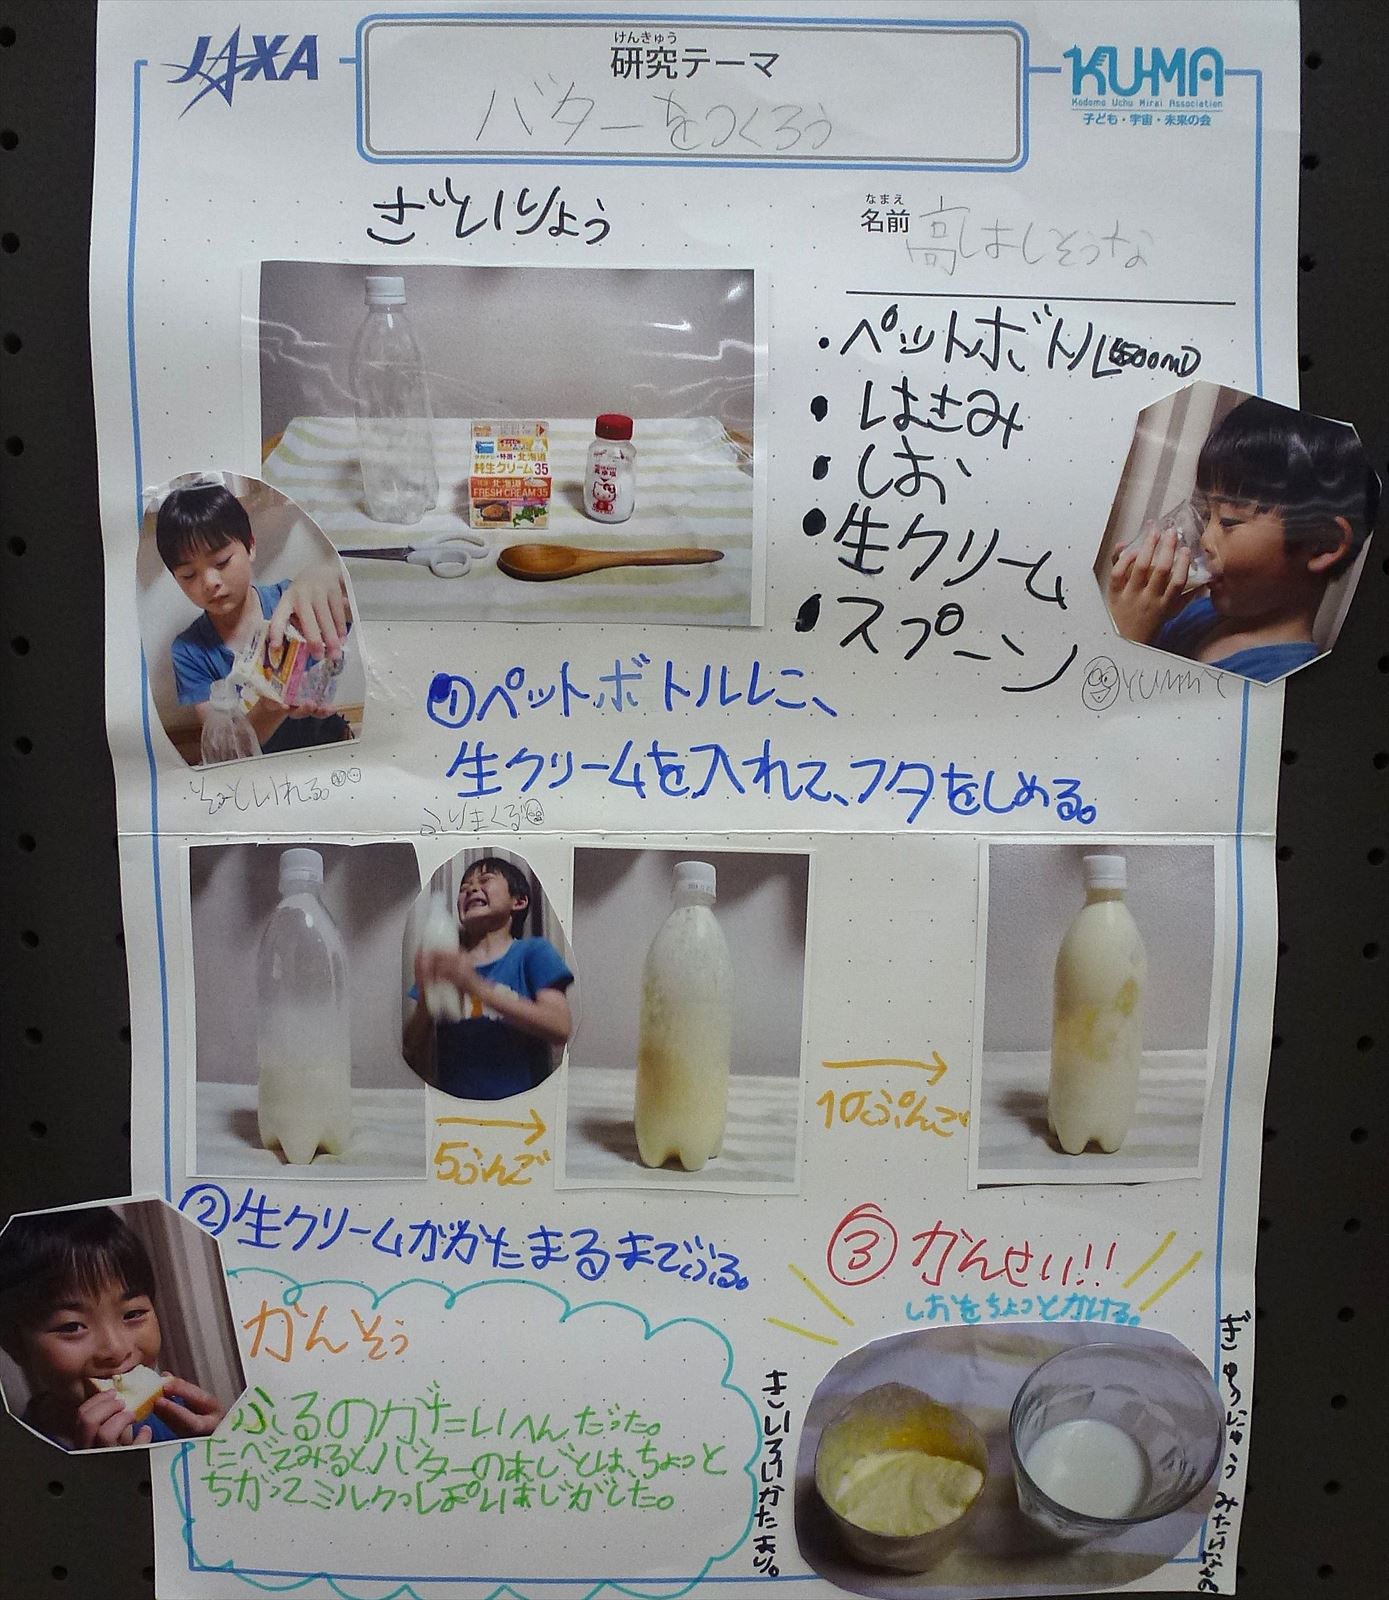 JAXA
けんきゅう
研究テーマ
バターをつくろう
KU-MA
Kodomo Uchu Mirai Association
子ども・宇宙・未来の会
ざいりょう
なまえ
名前
・ペットボトル(500ml)
・はさみ
・しお
・生クリーム
・スプーン
純生クリーム35
北海道
FRESH CREAM 35
YUMMY
①ペットボトルに、
生クリームを入れて、フタをしめる。
そぉといれる。
ふりまくる
5ふんご
10ぷんご
②生クリームがかたまるまでふる。
③かんせい!!
しおをちょっとかける。
かんそう
ふるのがたいへんだった。
たべてみるとバターのあじとは、ちょっと
ちがってミルクっしぽいはじがした。
きいろいかたまり。
ぎゅうにゅうみたいなもの